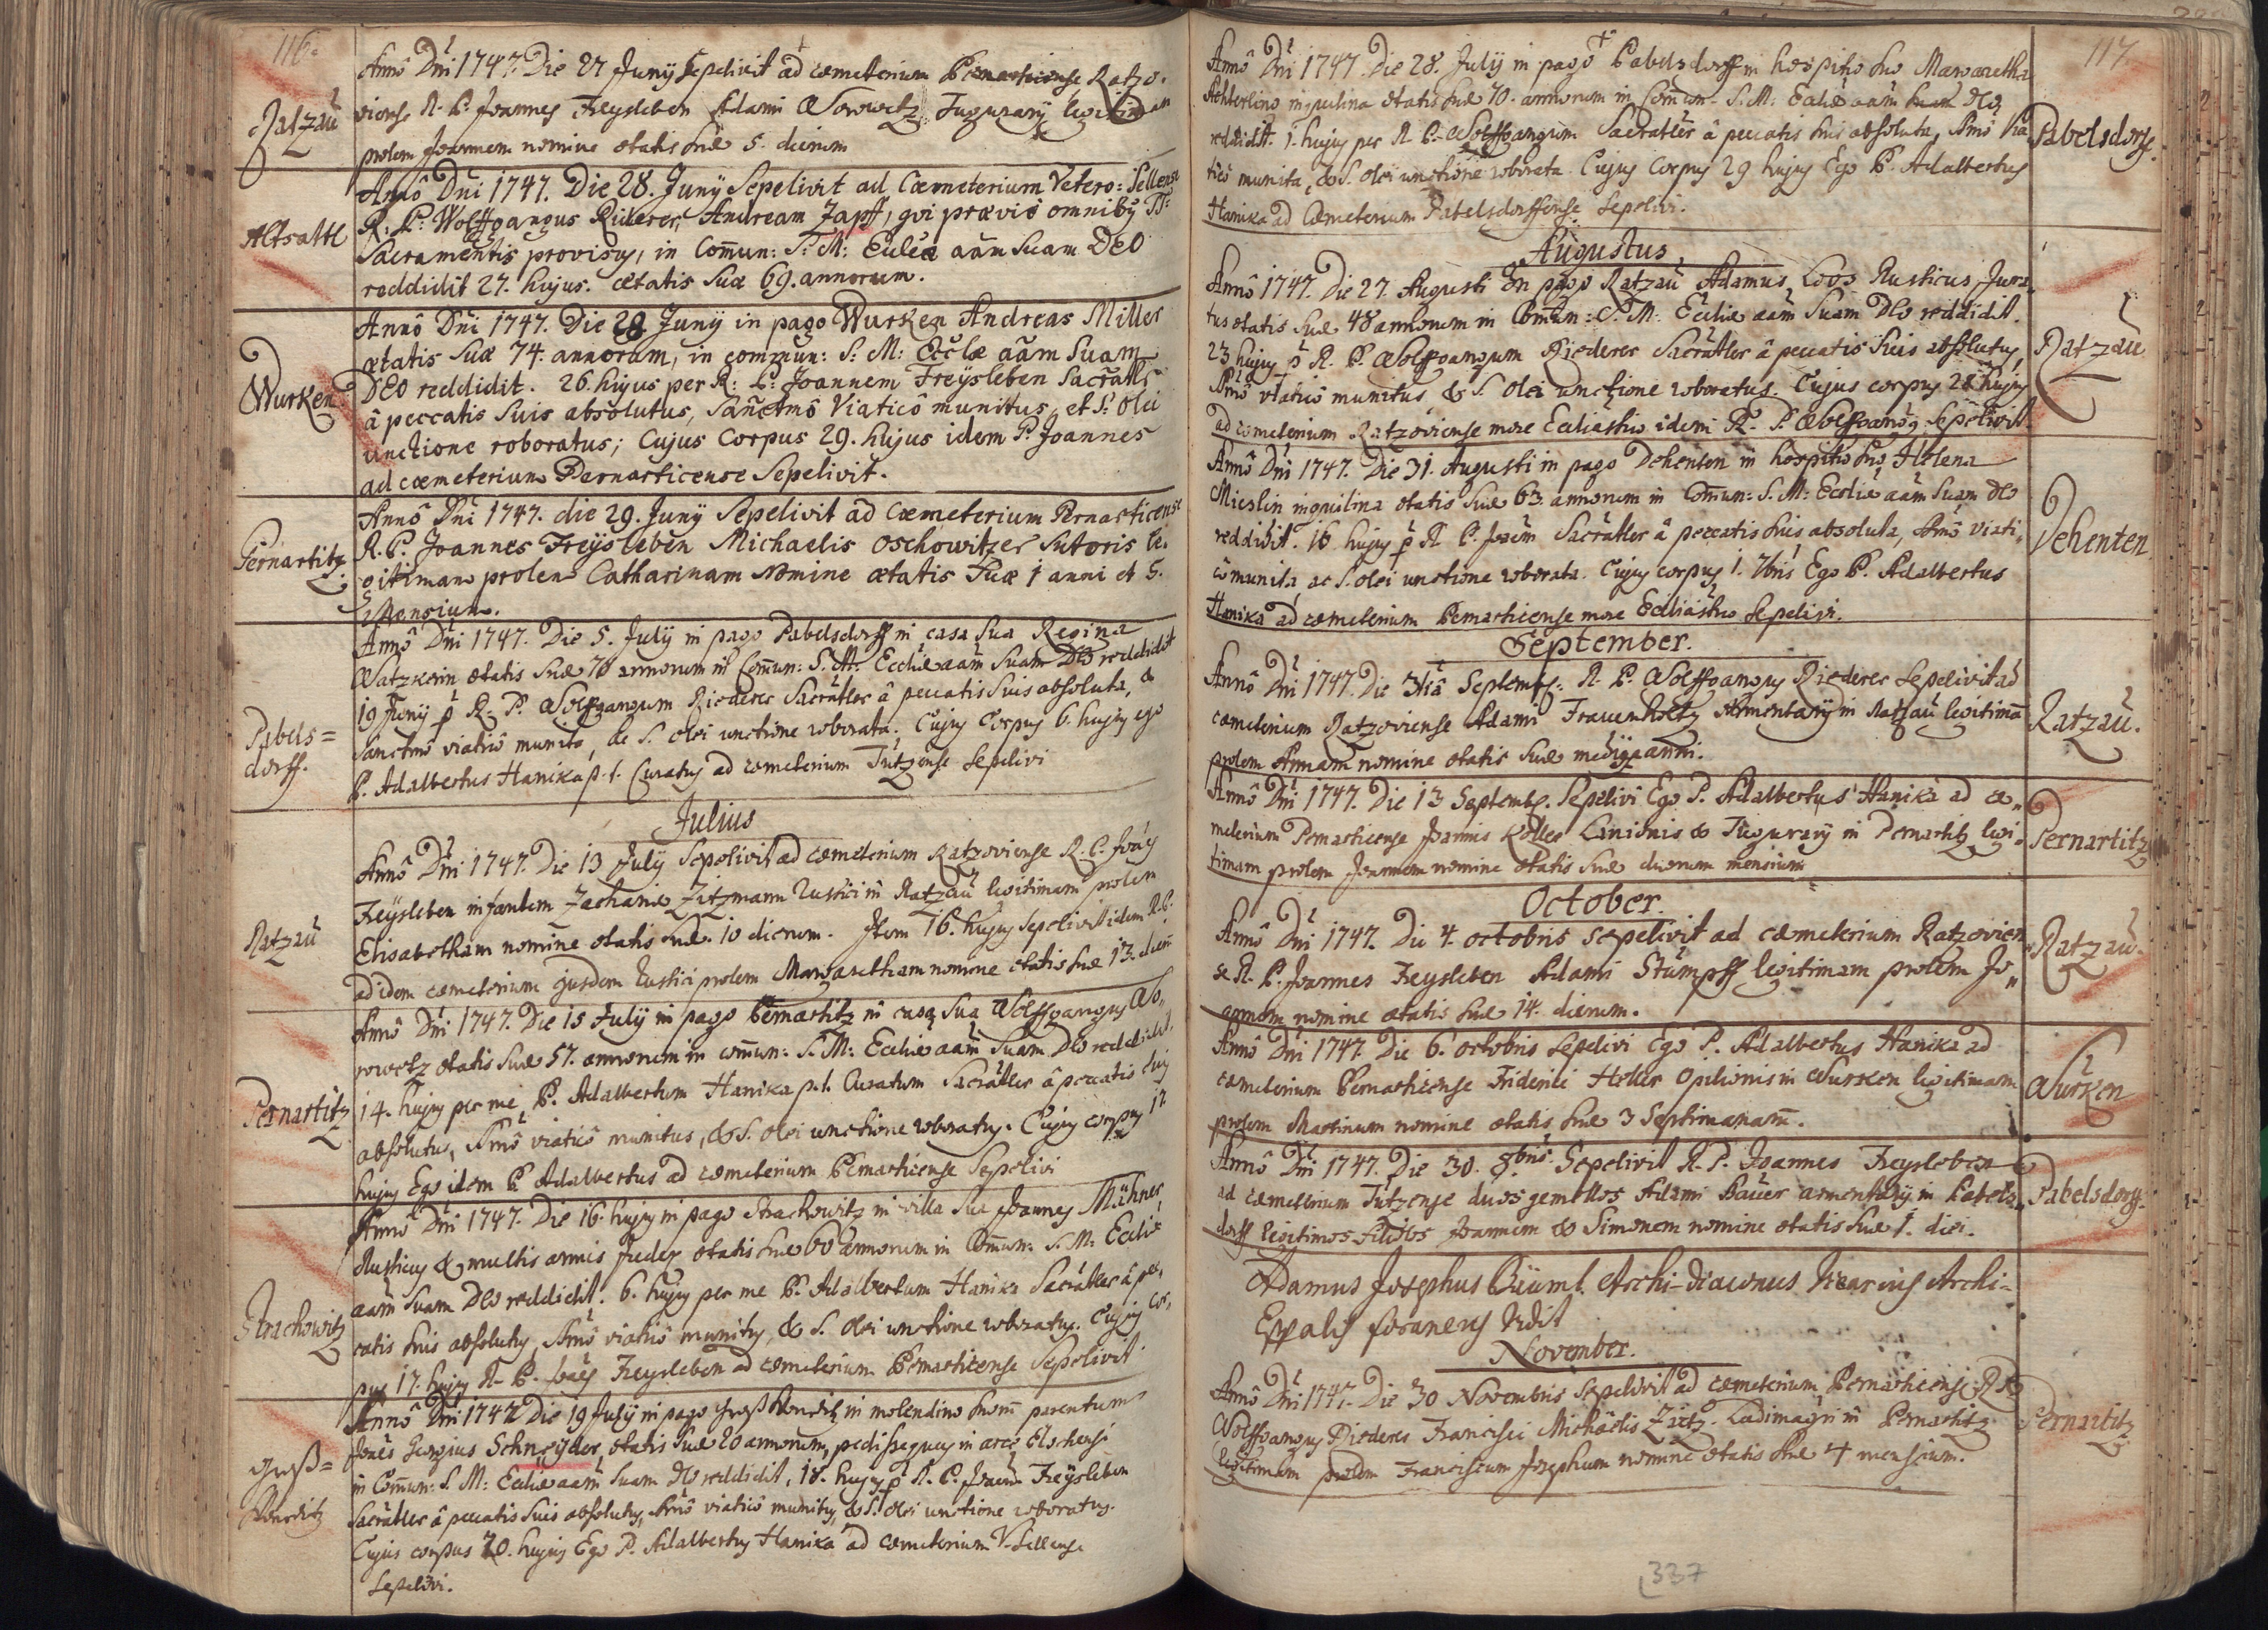 116.
Ratzau
Anno Dni 1747. Die 27 Junÿ Sepelivit ad cœmeterium Pernarticense Ratzo-
viense R. P. Joannes Freysleben Adami Worowetz Tugurarÿ legitimam
prolem Joannem nomine ætatis suæ 5. dierum
Altsattl
Anno Dni 1747. Die 28. Junÿ Sepelivit ad Cœmeterium Vetero-Sellense
R: P: Wolffgangus Riderer, Andream Zapff, qui prævie omnibus
Sacramentis provisus, in Comun: S: M: Ecclæ aam Suam DEO
reddidit 27. hujus. ætatis Suæ 69. annorum.
Wurken
Anno Dni 1747. Die 28 Junÿ in pago Wurken Andreas Miller
ætatis Suæ 74. annorum, in commun: S: M: Ecclæ aam Suam
DEO reddidit. 26. hujus per R: P: Joannem Freÿsleben Sacratlr
â peccatis Suis absolutus, Sanctmo Viatico munitus, et S: Olei
unctione roboratus; Cujus Corpus 29. hujus idem P. Joannes
ad cœmeterium Pernarticense Sepelivit.
Pernartitz
Anno Dni 1747. die 29. Junÿ Sepelivit ad Cœmeterium Pernarticense
R. P. Joannes Freÿsleben Michaelis Oschowitzer Sutoris le-
gitimam prolem Catharinam Nomine ætatis Suæ 1 anni et 5.
Mensium.
Pabels=
dorff.
Anno Dni 1747. Die 5. Julÿ in pago Pabelsdorff in casa Sua Regina
Watzkerin ætatis Suæ 70 annorum in Comun: S: M: Eccliæ aam Suam Deo reddidit
19 Junÿ p R. P. Wolffgangum Riederer Sacratler â peccatis Suis absoluta, &
Sanctmo viatico munita, ac S. olei unctione roborata. Cujus Corpus 6. hujus ego
P. Adalbertus Hanika p. t. Curatus ad cœmeterium Tutzense Sepelivi
Julius
Ratzau
Anno Dni 1747. Die 13 Julÿ Sepelivit ad cœmeterium Ratzoviense R. P. Joäes
Freysleben infantem Zachariæ Zitzmann Rustici in Ratzau legitimam prolem
Elisabetham nomine ætatis Suæ. 10 dierum. Item 16. hujus Sepelivit idem R. P.
ad idem cœmeterium ejusdem Rustici prolem Margaretham nomine ætatis suæ 13. dierum
Pernartitz
Anno Dni 1747. Die 15 Julÿ in pago Pernartitz in casa Sua Wolffgangus Wo-
rowetz ætatis Suæ 57. annorum in comun: S: M: Eccliæ aam Suam Deo reddidit,
14. hujus per me P. Adalbertum Hanika p. t. Curatum Sacratler â peccatis suis
absolutus, Smo viatico munitus, & S. olei unctione roboratus. Cujus corpus 17
hujus Ego idem P. Adalbertus ad cœmeterium Pernarticense Sepelivi
Strachowitz
Anno Dni 1747. Die 16. hujus in pago Strachowitz in villa Sua Joannes Mühner
Rusticus & multis annis Judex ætatis suæ 60 annorum in Comun: S. M: Eccliæ
aam Suam Deo reddidit. 6. hujus per me P. Adalbertum Hanika Sacratler â pec-
catis suis absolutus, Smo viatico munitus, & S. olei unctione roboratus. Cujus cor-
pus 17. hujus R. P. Joäes Freysleben ad cœmeterium Pernarticense Sepelivit
Groß=
Wonditz
Anno Dni 1747 Die 19 Julÿ in pago Groß Wonditz in molendino suorum parentum
Joäes Georgius Schneÿder, ætatis Suæ 20 annorum, pedissequus in arce
in Comun: S. M: Eccliæ aam Suam Deo reddidit. 18. hujus p R. P. Joaem Freÿsleben
Sacratler â peccatis Suis absolutus, Smo viatico munitus, & S. olei unctione roboratus.
Cujus corpus 20. hujus Ego P. Adalbertus Hanika ad cœmeterium V. Sellense
Sepelivi.
117.
Pabelsdorff.
Anno Dni 1747. Die 28. Julÿ in pago Pabelsdorff in hospitio suo Margaretha
Achterlino inquilina ætatis suæ 70. annorum in Comun. S. M: Ecclæ aam suam Deo
reddidit. 1. hujus per R. P. Wolffgangum Sacratler â peccatis suis absoluta, Smo Via-
tico munita, & S. olei unctione roborata. Cujus Corpus 29 hujus Ego P. Adalbertus
Hanika ad Cœmeterium Pabelsdorffense Sepelivi.
Augustus
Ratzau
Anno 1747. Die 27. Augusti in pago Ratzau Adamus Loos Rusticus Jura-
tus ætatis Suæ 48 annorum in Comun: S. M: Eccliæ aam Suam Deo reddidit.
23 hujus p R. P. Wolffgangum Riederer Sacratler â peccatis Suis absolutus,
Smo viatico munitus & S. Olei unctione roboratus. Cujus corpus 28 hujus
ad cœmeterium Ratzoviense more Eccliastico idem R. P. Wolffgangus Sepelivit
Dehenten
Anno Dni 1747. Die 31. Augusti in pago Dehenten in hospitio suo Helena
Mieslin inquilina ætatis Suæ 63 annorum in Comun: S. M: Eccliæ aam Suam Deo
reddidit. 16 hujus p R. P. Joaem Sacratler â peccatis suis absoluta, Smo viati-
co munita, ac S. olei unctione roborata. Cujus corpus 1. 7bris Ego P. Adalbertus
Hanika ad cœmeterium Pernarticense more Eccliastico Sepelivi.
September.
Ratzau.
Anno Dni 1747. Die 3tia Septemb: R. P. Wolffgangus Riederer Sepelivit ad
cœmeterium Ratzoviense Adami Frauenholtz Armentarÿ in Ratzau legitimã
prolem Annam nomine ætatis Suæ medÿ anni.
Pernartitz
Anno Dni 1747. Die 13 Septemb. Sepelivi Ego P. Adalbertus Hanika ad cœ-
meterium Pernarticense Joannis Koller Lanionis & Tugurarÿ in Pernartitz legi-
timam prolem Joannem nomine ætatis Suæ duorum mensium
October.
Ratzau.
Anno Dni 1747. Die 4. octobris sepelivit ad cœmeterium Ratzovien-
se R. P. Joannes Freysleben Adami Stumpff legitimam prolem Jo-
annem nomine ætatis suæ 14. dierum.
Wurken
Anno Dni 1747. Die 6. octobris Sepelivi Ego P. Adalbertus Hanika ad
cœmeterium Pernarticense Friderici Heller Opilionis in Wurken legitimam
prolem Martinum nomine ætatis suæ 3 Septimanarũ.
Pabelsdorff.
Anno Dni 1747. Die 30. 8bris Sepelivit R. P. Joannes Freysleben
ad cœmeterium Tutzense duos gemellos Adami Bauer armentarÿ in Pabels-
dorff legitimos filios Joannem & Simonem nomine ætatis suæ 1. diei.
Adamus Josephus Bäuml Archi-Diaconus Vicarius Archi-
Eppalis foraneus Vidit
November.
Pernartitz
Anno Dni 1747. Die 30 Novembris Sepelivit ad cœmeterium Pernarticense R. P.
Wolffgangus Riederer Francisci Michaelis Zietz Ludimagri in Pernartitz
legitimam prolem Franciscum Josephum nomine ætatis suæ 4 mensium.
337